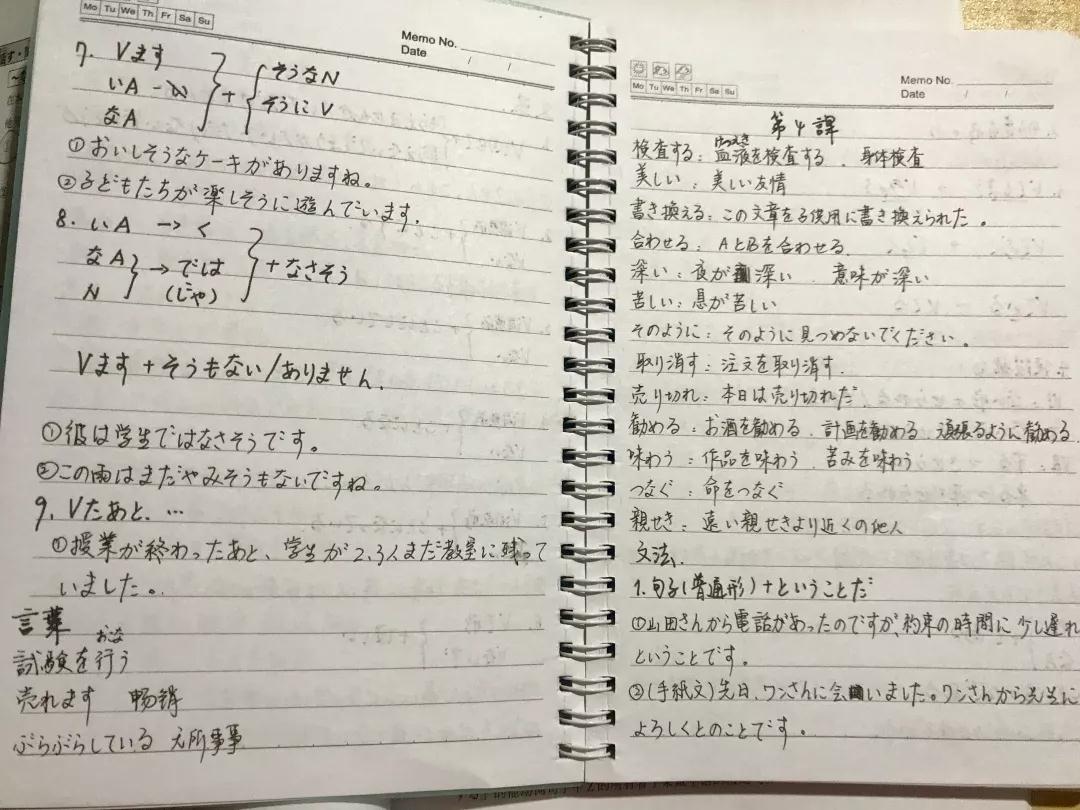 Mo Tu We Th Fr Sa Su
Memo No.
Date / /
7. Vます
いA-い
なA
+
そうなN
そうにV
①おいしそうなケーキがありますね。
②子どもたちが楽しそうに遊んでいます。
8. いA → く
なA
N
→ では
(じゃ)
+なさそう
Vます+そうもない/ありません.
①彼は学生ではなさそうです。
②この雨はまだやみそうもないですね。
9. Vたあと、…
①授業が終わったあと、学生が2,3人まだ教室に残って
いました。
言葉
おこな
試験を行う
売れます 畅销
ぶらぶらしている 无所事事
Mo Tu We Th Fr Sa Su
Memo No.
Date / /
第4課
検査する:血液を検査する、身体検査
美しい:美しい友情
書き換える:この文章を子供用に書き換えられた。
合わせる:AとBを合わせる
深い:夜が深い 意味が深い
苦しい:息が苦しい
そのように:そのように見つめないでください。
取り消す:注文を取り消す.
売り切れ:本日は売り切れだ
勧める:お酒を勧める、計画を勧める 頑張るように勧める.
味わう:作品を味わう、苦みを味わう
つなぐ:命をつなぐ
親せき:遠い親せきより近くの他人
文法.
1.句子(普通形)+ということだ
①山田さんから電話があったのですが、約束の時間に少し遅れ
ということです。
②(手紙文)先日、ワンさんに会いました。ワンさんから先生に
よろしくとのことです。